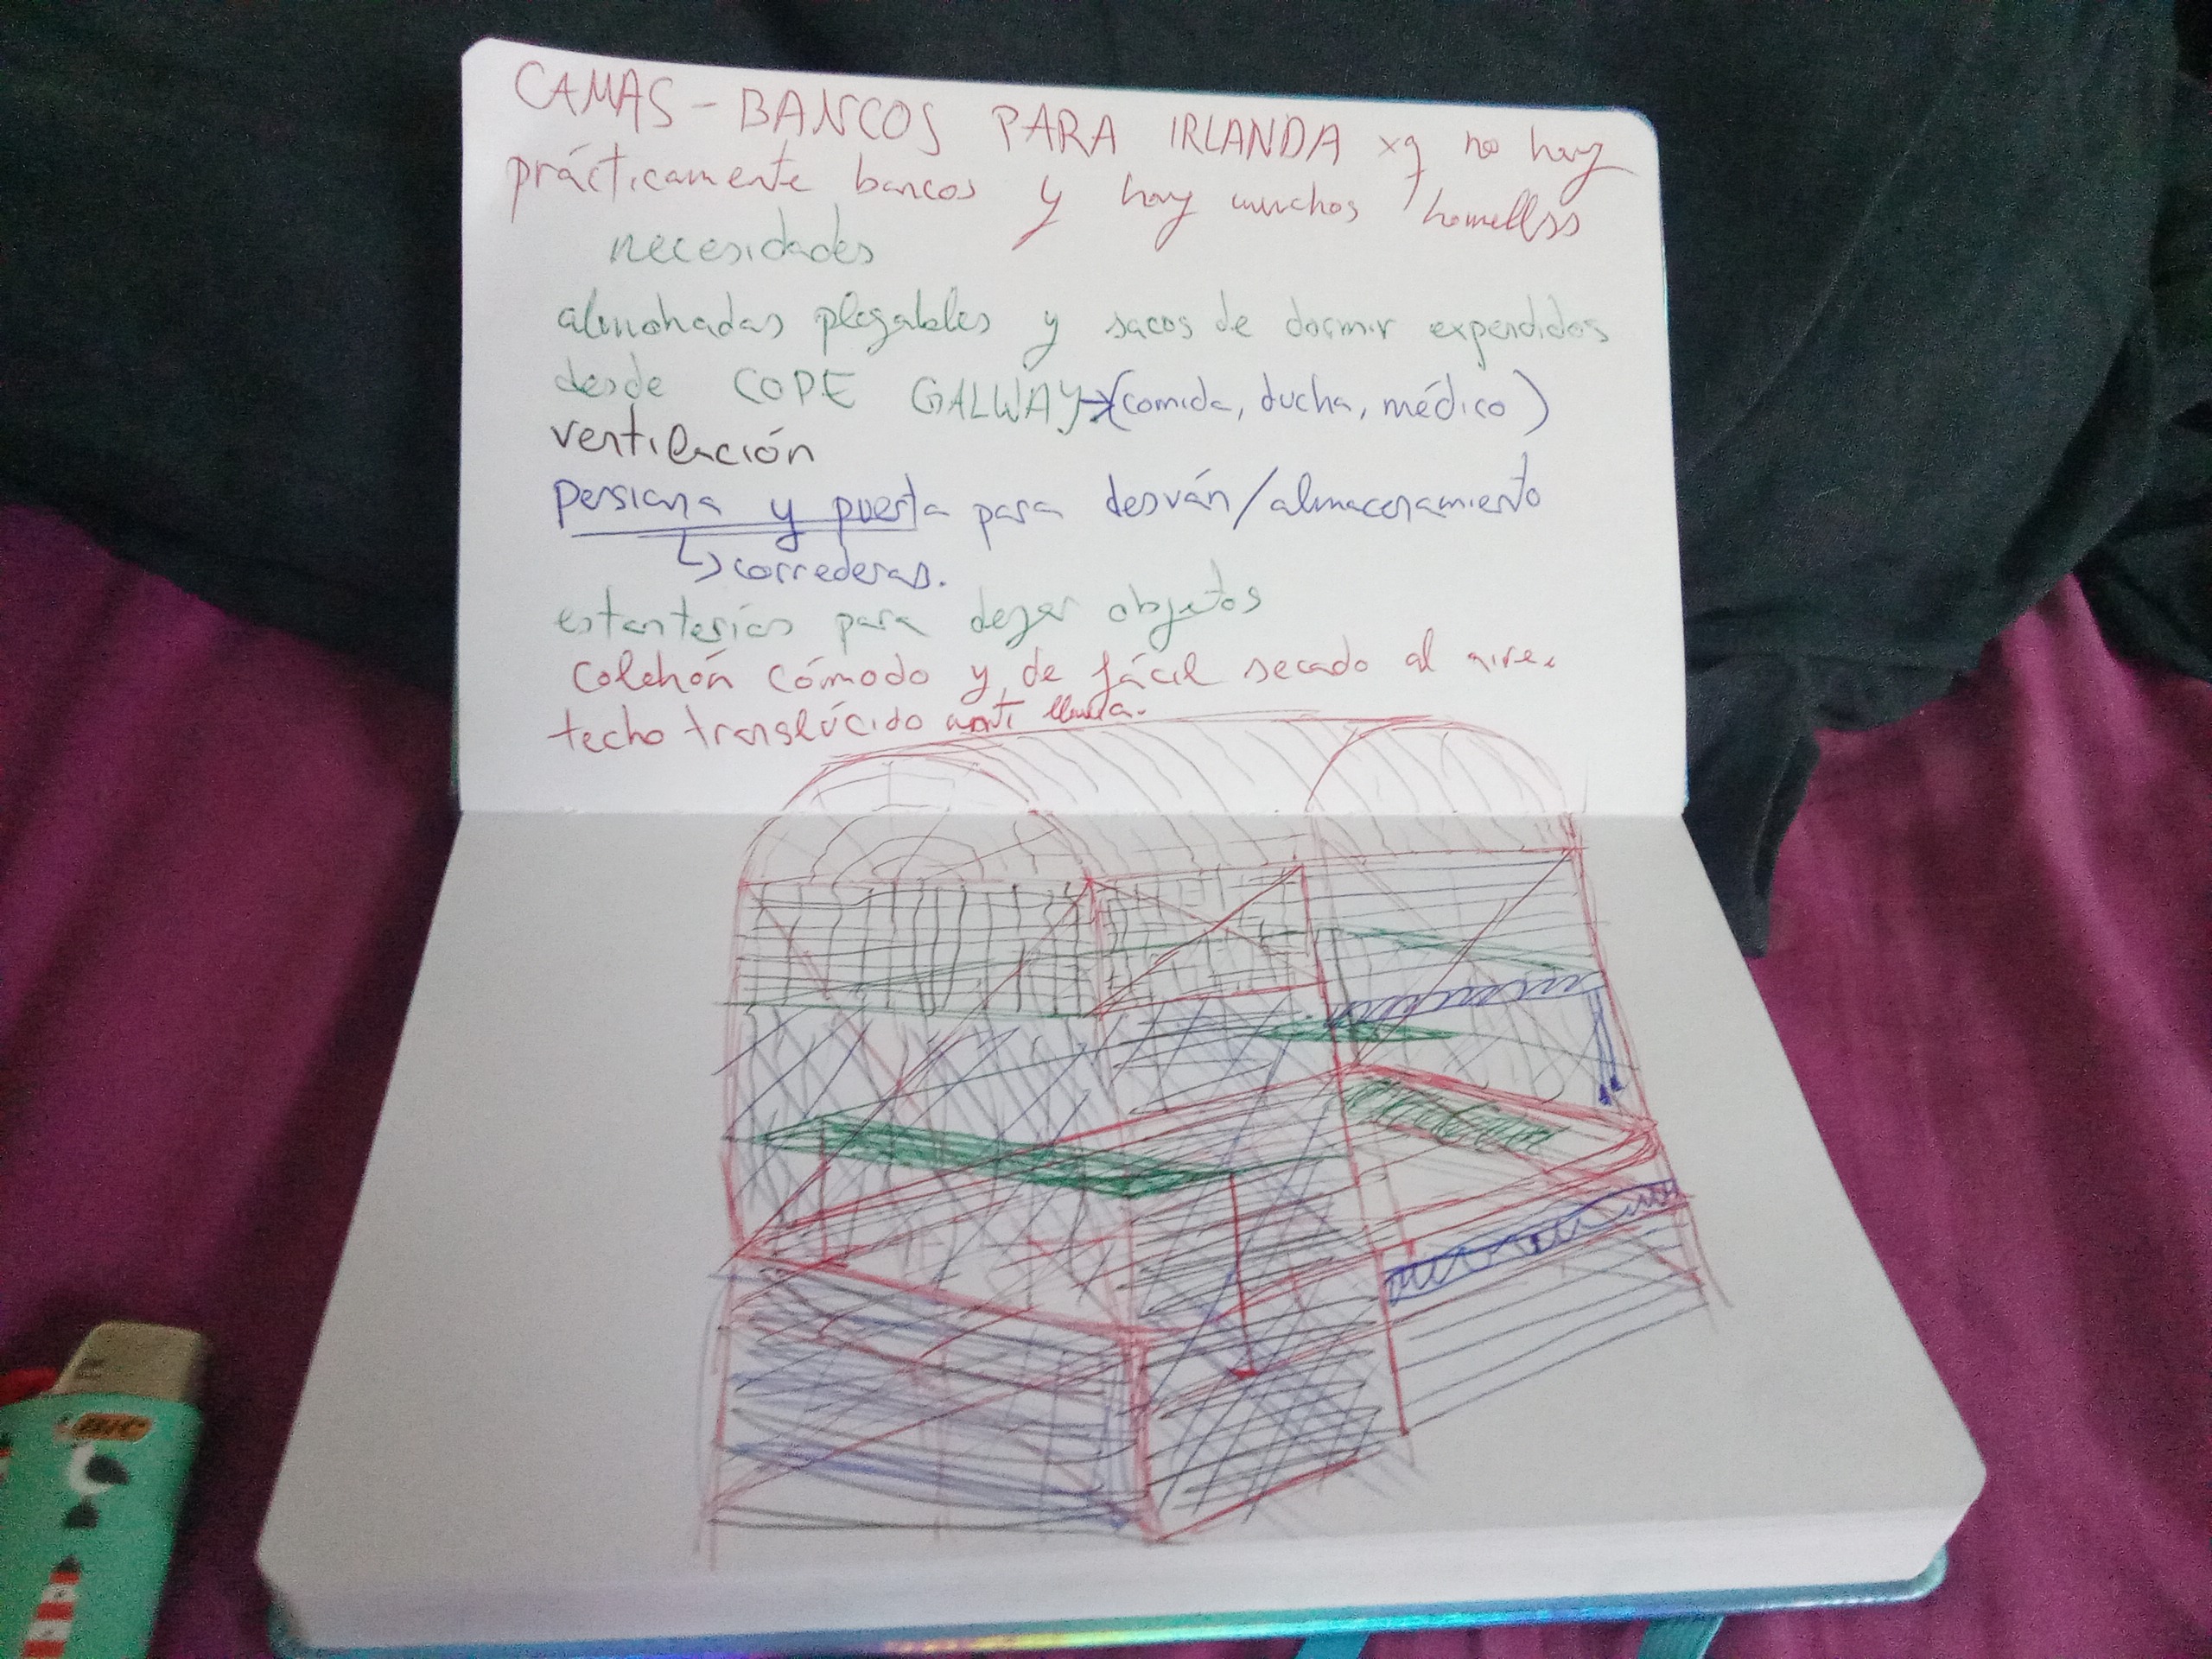 CAMAS - BANCOS PARA IRLANDA xq no hay
prácticamente bancos y hay muchos homelless
necesidades
almohadas plegables y sacos de dormir expendidos
desde COPE GALWAY → (comida, ducha, médico)
ventilación
persiana y puerta para desván/almacenamiento
↳ correderas.
estanterías para dejar objetos
colchón cómodo y de fácil secado al aire.
techo translúcido anti lluvia.
BIC